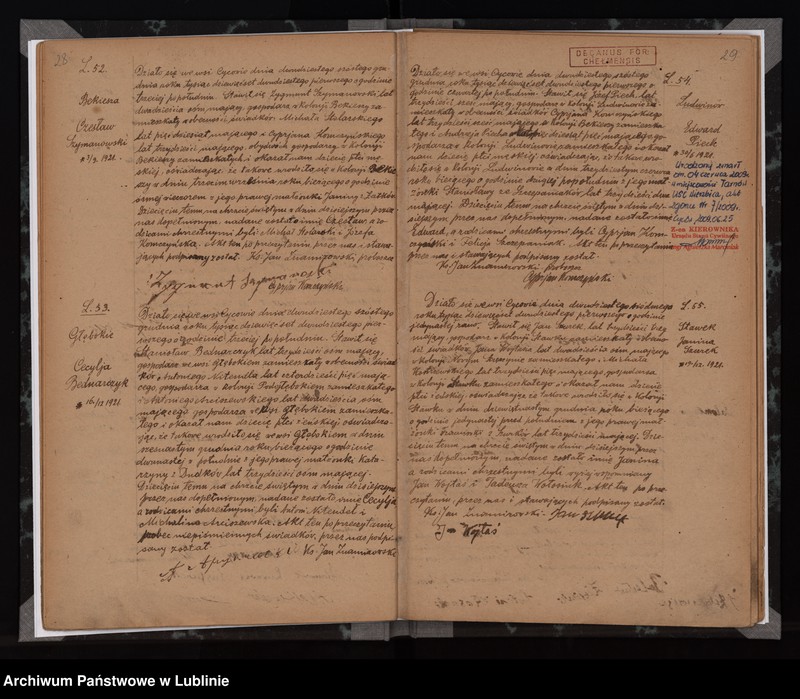 28
L. 52.
Bekiesza
Czesław
Szymanowski
Działo się we wsi Cycowie dnia dwudziestego szóstego gru-
dnia roku tysiąc dziewięćset dwudziestego pierwszego o godzinie
trzeciej po południu. Stawił się Zygmunt Szymanowski, lat
dwadzieścia ośm mający, gospodarz w kolonji
mieszkały w obecności świadków Michała Stolarskiego
lat pięćdziesiąt mającego i Cyprjana Komczyńskiego
lat trzydzieści mającego, obydwóch gospodarzy w kolonji
zamieszkałych i okazał nam dziecię płci mę-
skiej, oświadczając, że takowe urodziło się w kolonji
w dniu trzecim września roku bieżącego o godzinie
ósmej wieczorem z jego prawej małżonki Janiny z
Dziecięciu temu na chrzcie świętym w dniu dzisiejszym przez
nas dopełnionym, nadane zostało imię Czesław, a ro-
dzicami chrzestnymi byli: Michał Stolarski i Józefa
Komczyńska. Akt ten po przeczytaniu przez nas i stawa-
jących podpisany został. Ks. Jan Znamirowski proboszcz
Zygmunt Szymanowski
Cyprian Komczyński
L. 53.
Głębokie
Cecylja
Bednarczyk
* 16/12 1921.
Działo się we wsi Cycowie dnia dwudziestego szóstego
grudnia roku tysiąc dziewięćset dwudziestego pier-
wszego o godzinie trzeciej po południu. Stawił się
Stanisław Bednarczyk, lat trzydzieści ośm mający,
gospodarz we wsi Głębokiem zamieszkały w obecności świad-
ków, Antoniego Metendla lat czterdzieści pięć mają-
cego gospodarza w kolonji Podgłębokiem zamieszkałego
i Antoniego lat dwadzieścia ośm
mającego gospodarza we wsi Głębokiem zamieszka-
łego i okazał nam dziecię płci żeńskiej oświadcza-
jąc, że takowe urodziło się we wsi Głębokiem w dniu
szesnastym grudnia roku bieżącego o godzinie
dwunastej w południe z jego prawej małżonki Kata-
rzyny z Dudków lat trzydzieści ośm mającej.
Dziecięciu temu na chrzcie świętym w dniu dzisiejszym
przez nas dopełnionym, nadane zostało imię Cecylja
a rodzicami chrzestnymi byli: Antoni Metendel i
Michalina Akt ten po przeczytaniu
wobec niepiśmiennych świadków, przez nas podpi-
sany został Ks. Jan Znamirowski
DECANUS FOR.
CHEŁMENSIS
29
Działo się we wsi Cycowie dnia dwudziestego szóstego
grudnia roku tysiąc dziewięćset dwudziestego pierwszego o
godzinie czwartej po południu. Stawił się Józef Piech, lat
trzydzieści sześć mający, gospodarz w kolonji Ludwinowie za-
mieszkały w obecności świadków Cyprjana Komczyńskiego
lat trzydzieści mającego, gospodarza w kolonji zamieszka-
łego i Andrzeja mającego go-
spodarza w kolonji Ludwinowie zamieszkałego i okazał
nam dziecię płci męskiej, oświadczając, że takowe uro-
dziło się w kolonji Ludwinowie w dniu trzydziestym czerwca
roku bieżącego o godzinie drugiej po południu z jego prawej mał-
żonki Stanisławy ze Szczepaniuków, lat trzydzieści dwa
mającej. Dziecięciu temu na chrzcie świętym w dniu dzi-
siejszym przez nas dopełnionym, nadane zostało imię
Edward, a rodzicami chrzestnymi byli: Cyprjan Kom-
czyński i Felicja Szczepaniuk. Akt ten po przeczytaniu
przez nas i stawających podpisany został.
Ks. Jan Znamirowski proboszcz
Cyprjan Komczyński
L. 54.
Ludwinów
Edward
Piech
* 30/6 1921.
Urodzony zmarł
dn. 04 czerwca 2009r.
w miejscowości Tarnów
USC Wierzbica, akt
zgonu Nr 7/2009r.
Cyców 2009.06.25
Z-ca KIEROWNIKA
Urzędu Stanu Cywilnego
Działo się we wsi Cycowie dnia dwudziestego siódmego
roku tysiąc dziewięćset dwudziestego pierwszego o godzinie
jedynastej rano. Stawił się Jan Skorek, lat trzydzieści trzy
mający, gospodarz w kolonji Stawku zamieszkały w obecno-
ści świadków, Jana Wojtasia lat dwadzieścia ośm mającego
w kolonji zamieszkałego i Michała
lat trzydzieści pięć mającego, gospodarza
w kolonji Stawku zamieszkałego i okazał nam dziecię
płci żeńskiej, oświadczając, że takowe urodziło się w kolonji
Stawku w dniu dziewiętnastym grudnia roku bieżącego
o godzinie jedynastej przed południem z jego prawej mał-
żonki Franciszki z lat trzydzieści mającej. Dzie-
cięciu temu na chrzcie świętym w dniu dzisiejszym przez
nas dopełnionym, nadane zostało imię Janina
a rodzicami chrzestnymi byli wyżej wspomniany
Jan Wojtaś i Tadeusz Wołosiuk. Akt ten po prze-
czytaniu przez nas i stawających podpisany został.
Ks. Jan Znamirowski.
Jan Wojtaś
L. 55.
Stawek
Janina
Skorek
* 19/12 1921.
Archiwum Państwowe w Lublinie